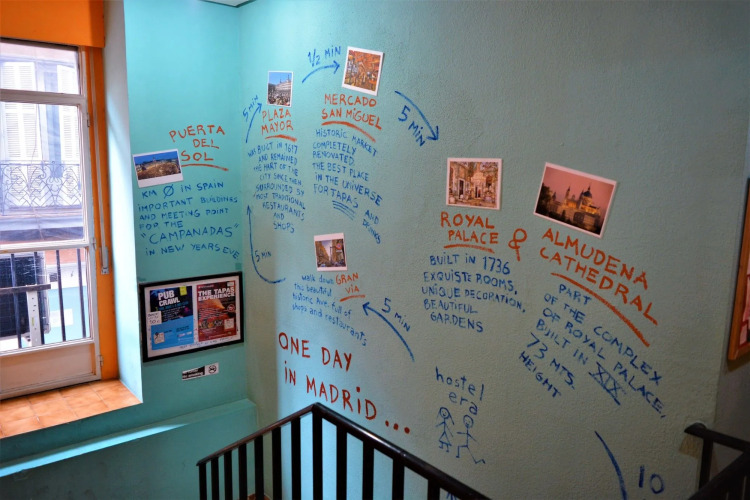 PUERTA
DEL
SOL
KM Ø IN SPAIN
IMPORTANT BUILDINGS
AND MEETING POINT
FOR THE
"CAMPANADAS"
IN NEW YEARS EVE
5 MIN
PLAZA
MAYOR
WAS BUILT IN 1617
AND REMAINED
THE HART OF THE
CITY SINCE THEN,
SURROUNDED BY
MOST TRADITIONAL
RESTAURANTS
AND
SHOPS
1/2 MIN
MERCADO
SAN MIGUEL
HISTORIC MARKET
COMPLETELY
RENOVATED.
THE BEST PLACE
IN THE UNIVERSE
FOR TAPAS AND
DRINKS
5 MIN
ROYAL
PALACE &
BUILT IN 1736
EXQUISTE ROOMS,
UNIQUE DECORATION,
BEAUTIFUL
GARDENS
ALMUDENA
CATHEDRAL
PART
OF THE COMPLEX
OF ROYAL PALACE,
BUILT IN XIX
73 MTS.
HEIGHT
5 MIN
walk down GRAN
VIA
this beautiful
historic Ave. full of
shops and restaurants
5 MIN
ONE DAY
IN MADRID...
hostel
era
10
PUB
CRAWL
THE TAPAS
EXPERIENCE